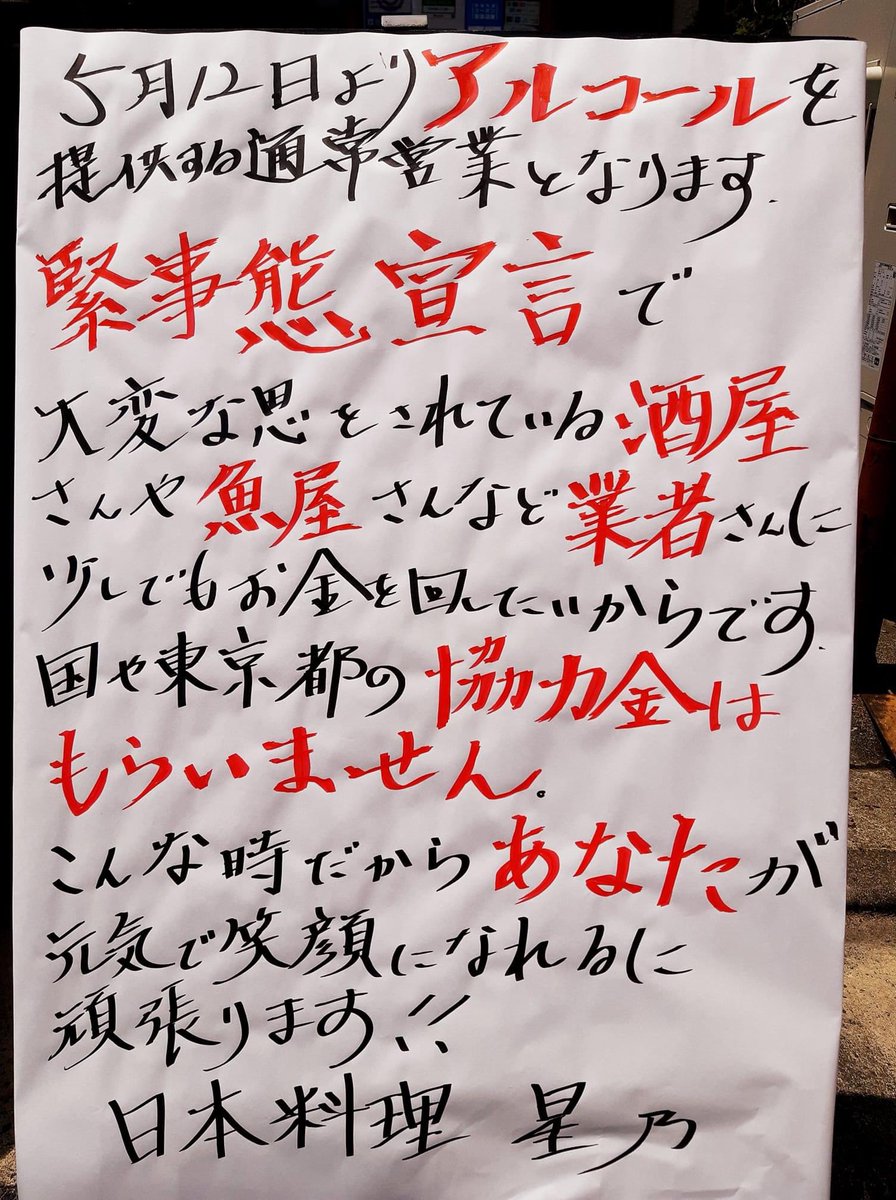 5月12日よりアルコールを
提供する通常営業となります.
緊事態宣言で
大変な思をされている酒屋
さんや魚屋さんなど業者さんに
少しでもお金を回したいからです.
国や東京都の協力金は
もらいません。
こんな時だからあなたが
元気で笑顔になれるに
頑張ります!!
日本料理 星乃